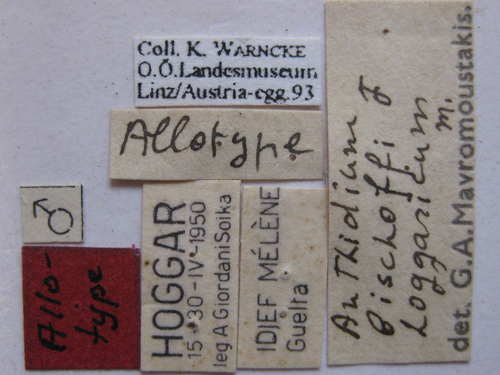 Coll. K. WARNCKE
O.Ö.Landesmuseum
Linz/Austria-egg.93
Allotype
♂
Allo-
type
HOGGAR
15-30-IV-1950
leg A Giordani Soika
IDJEF MÉLÈNE
Guelta
Anthidium
Bischoffi ♂
hoggaricum
m.
det. G.A.Mavromoustakis.